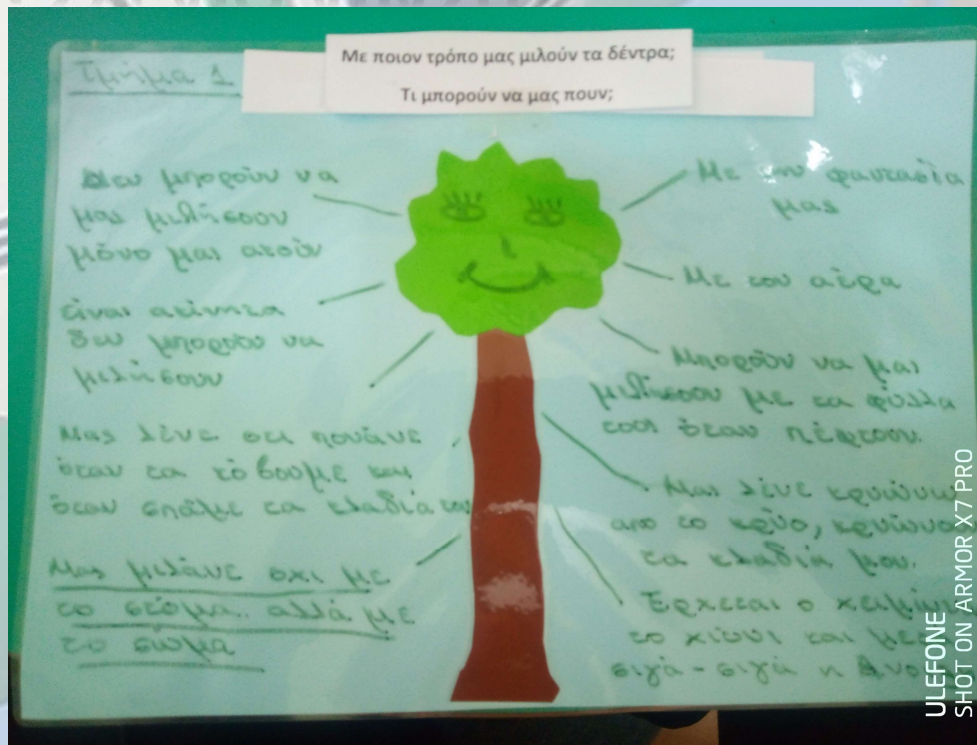 Τμήμα 1
Με ποιον τρόπο μας μιλούν τα δέντρα;
Τι μπορούν να μας πουν;
Δεν μπορούν να
μας μιλήσουν
μόνο μας ακούν
είναι ακίνητα
δεν μπορούν να
μιλήσουν
Μας λένε οτι πονάνε
όταν τα κόβουμε και
όταν σπάμε τα κλαδιά του
Μας μιλάνε οχι με
το στόμα.. αλλά με
το σώμα
Με την φαντασία
μας
Με τον αέρα
Μπορούν να μας
μιλήσουν με τα φύλλα
τους όταν πέφτουν.
Μας λένε κρυώνω
απο το κρύο, κρυώνουν
τα κλαδιά μου.
Έρχεται ο
το χιόνι και
σιγά-σιγά η
ULEFONE
SHOT ON ARMOR X7 PRO